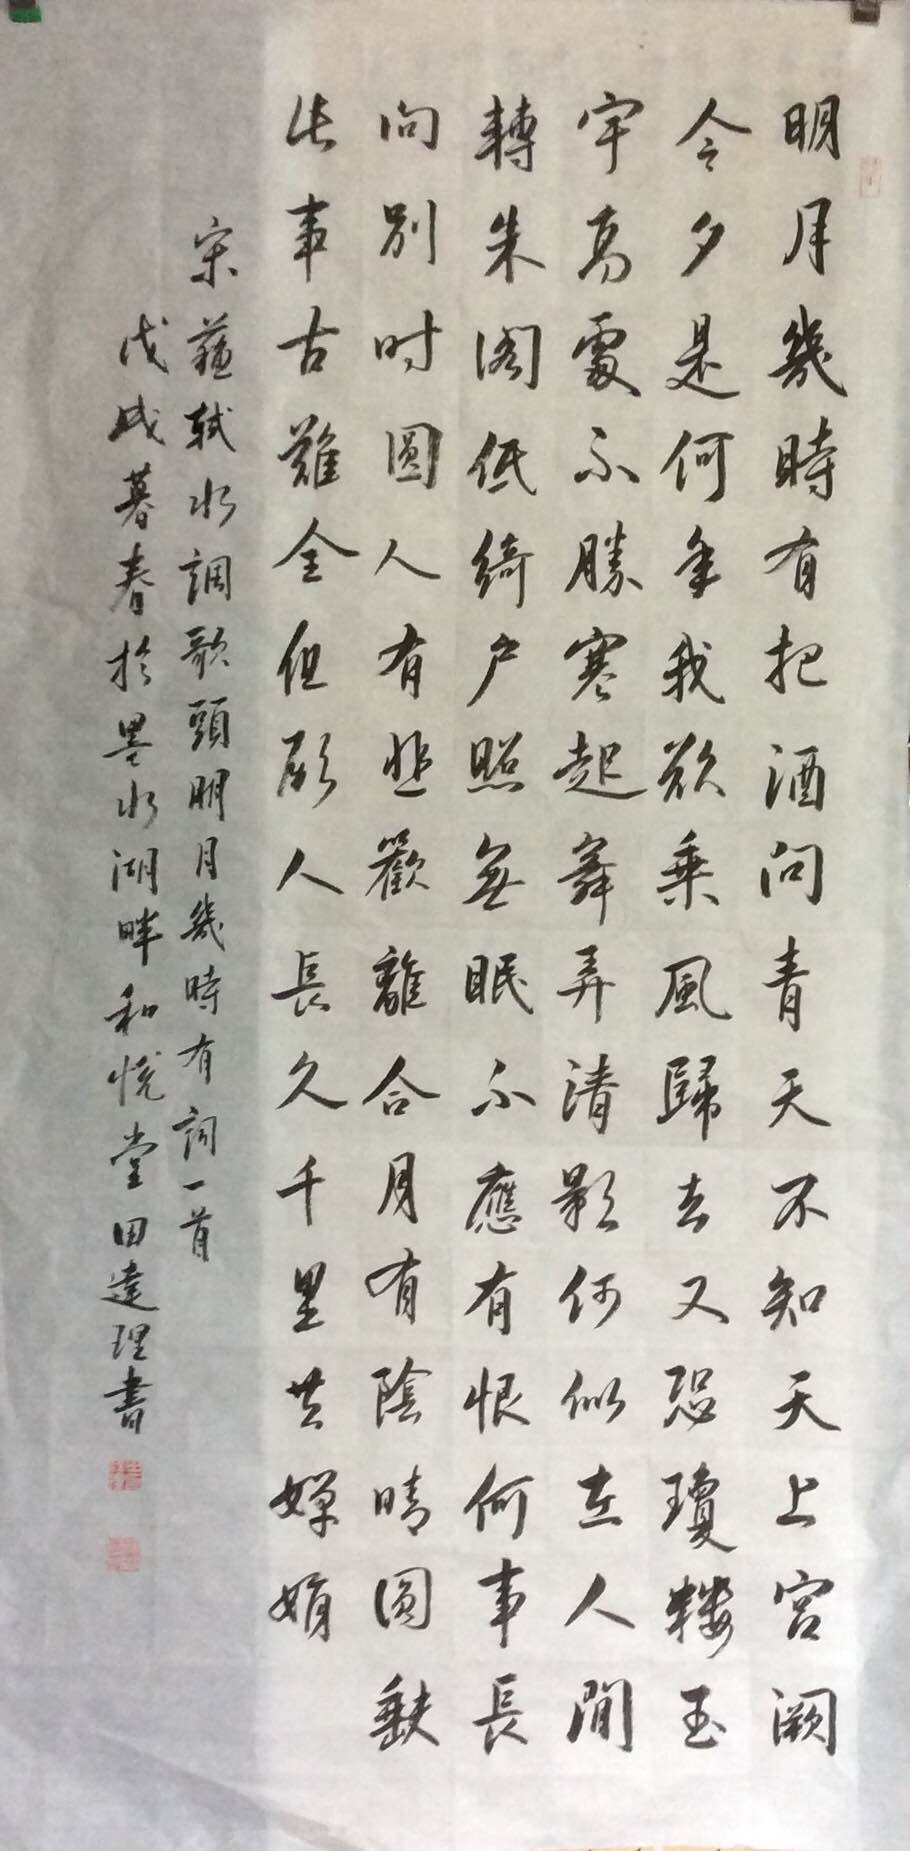 明月幾時有把酒問青天不知天上宮闕
今夕是何年我欲乘風歸去又恐瓊樓玉
宇高處不勝寒起舞弄清影何似在人間
轉朱閣低綺户照無眠不應有恨何事長
向別时圓人有悲歡離合月有陰晴圓缺
此事古難全但願人長久千里共嬋娟
宋蘇軾水調歌頭明月幾時有詞一首
戊戌暮春於墨水湖畔和悅堂田達理書